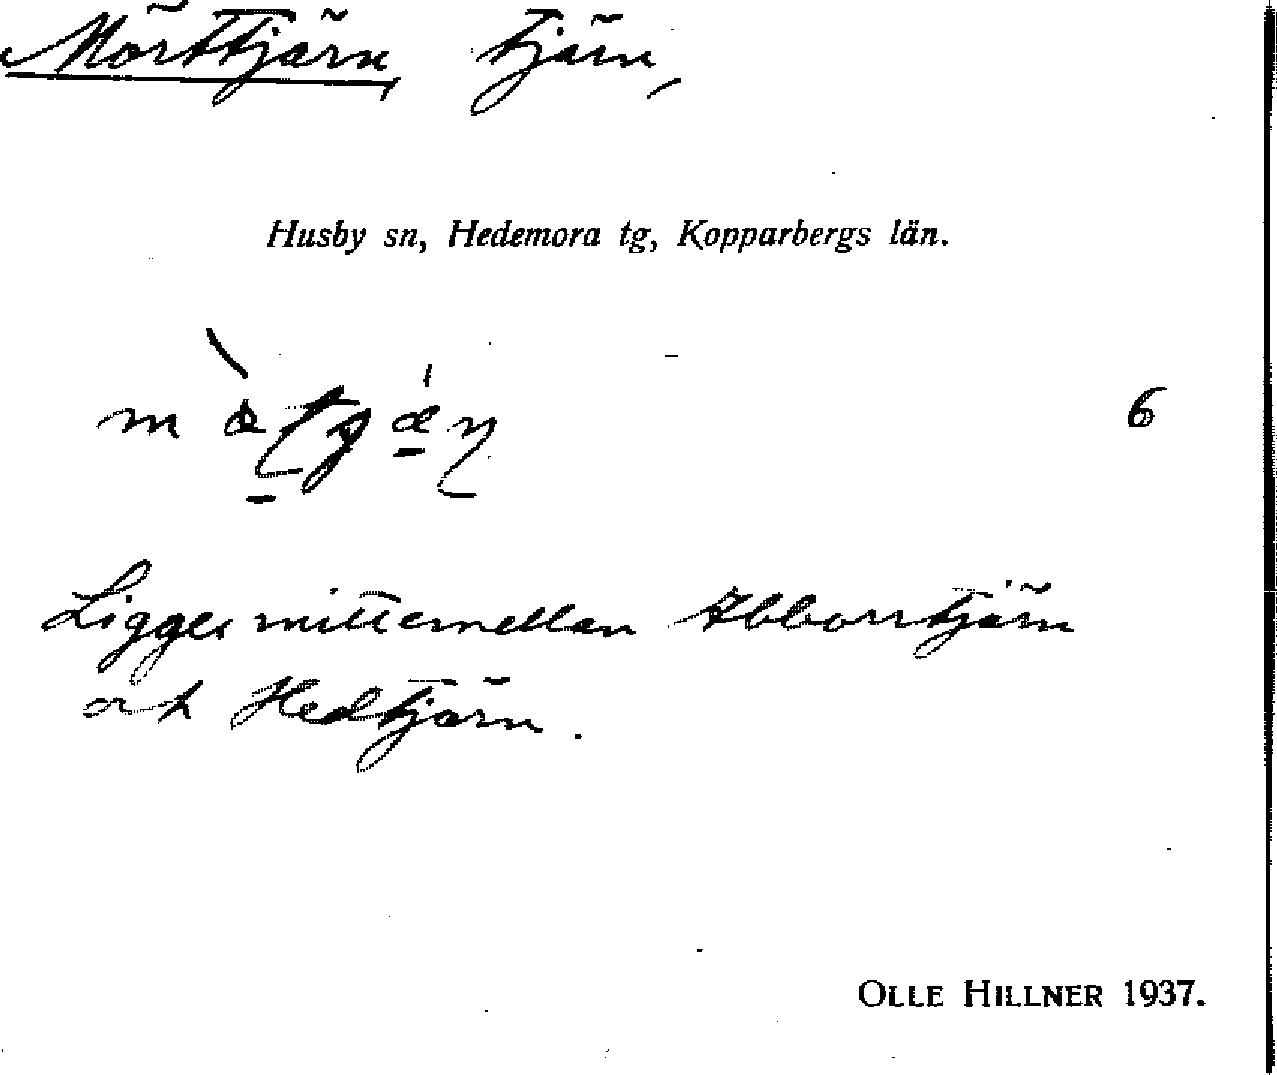 Mörttjärn, tjärn,
Husby sn, Hedemora tg, Kopparbergs län.
6
Ligger mittemellan Abborrtjärn
och Hedtjärn.
OLLE HILLNER 1937.